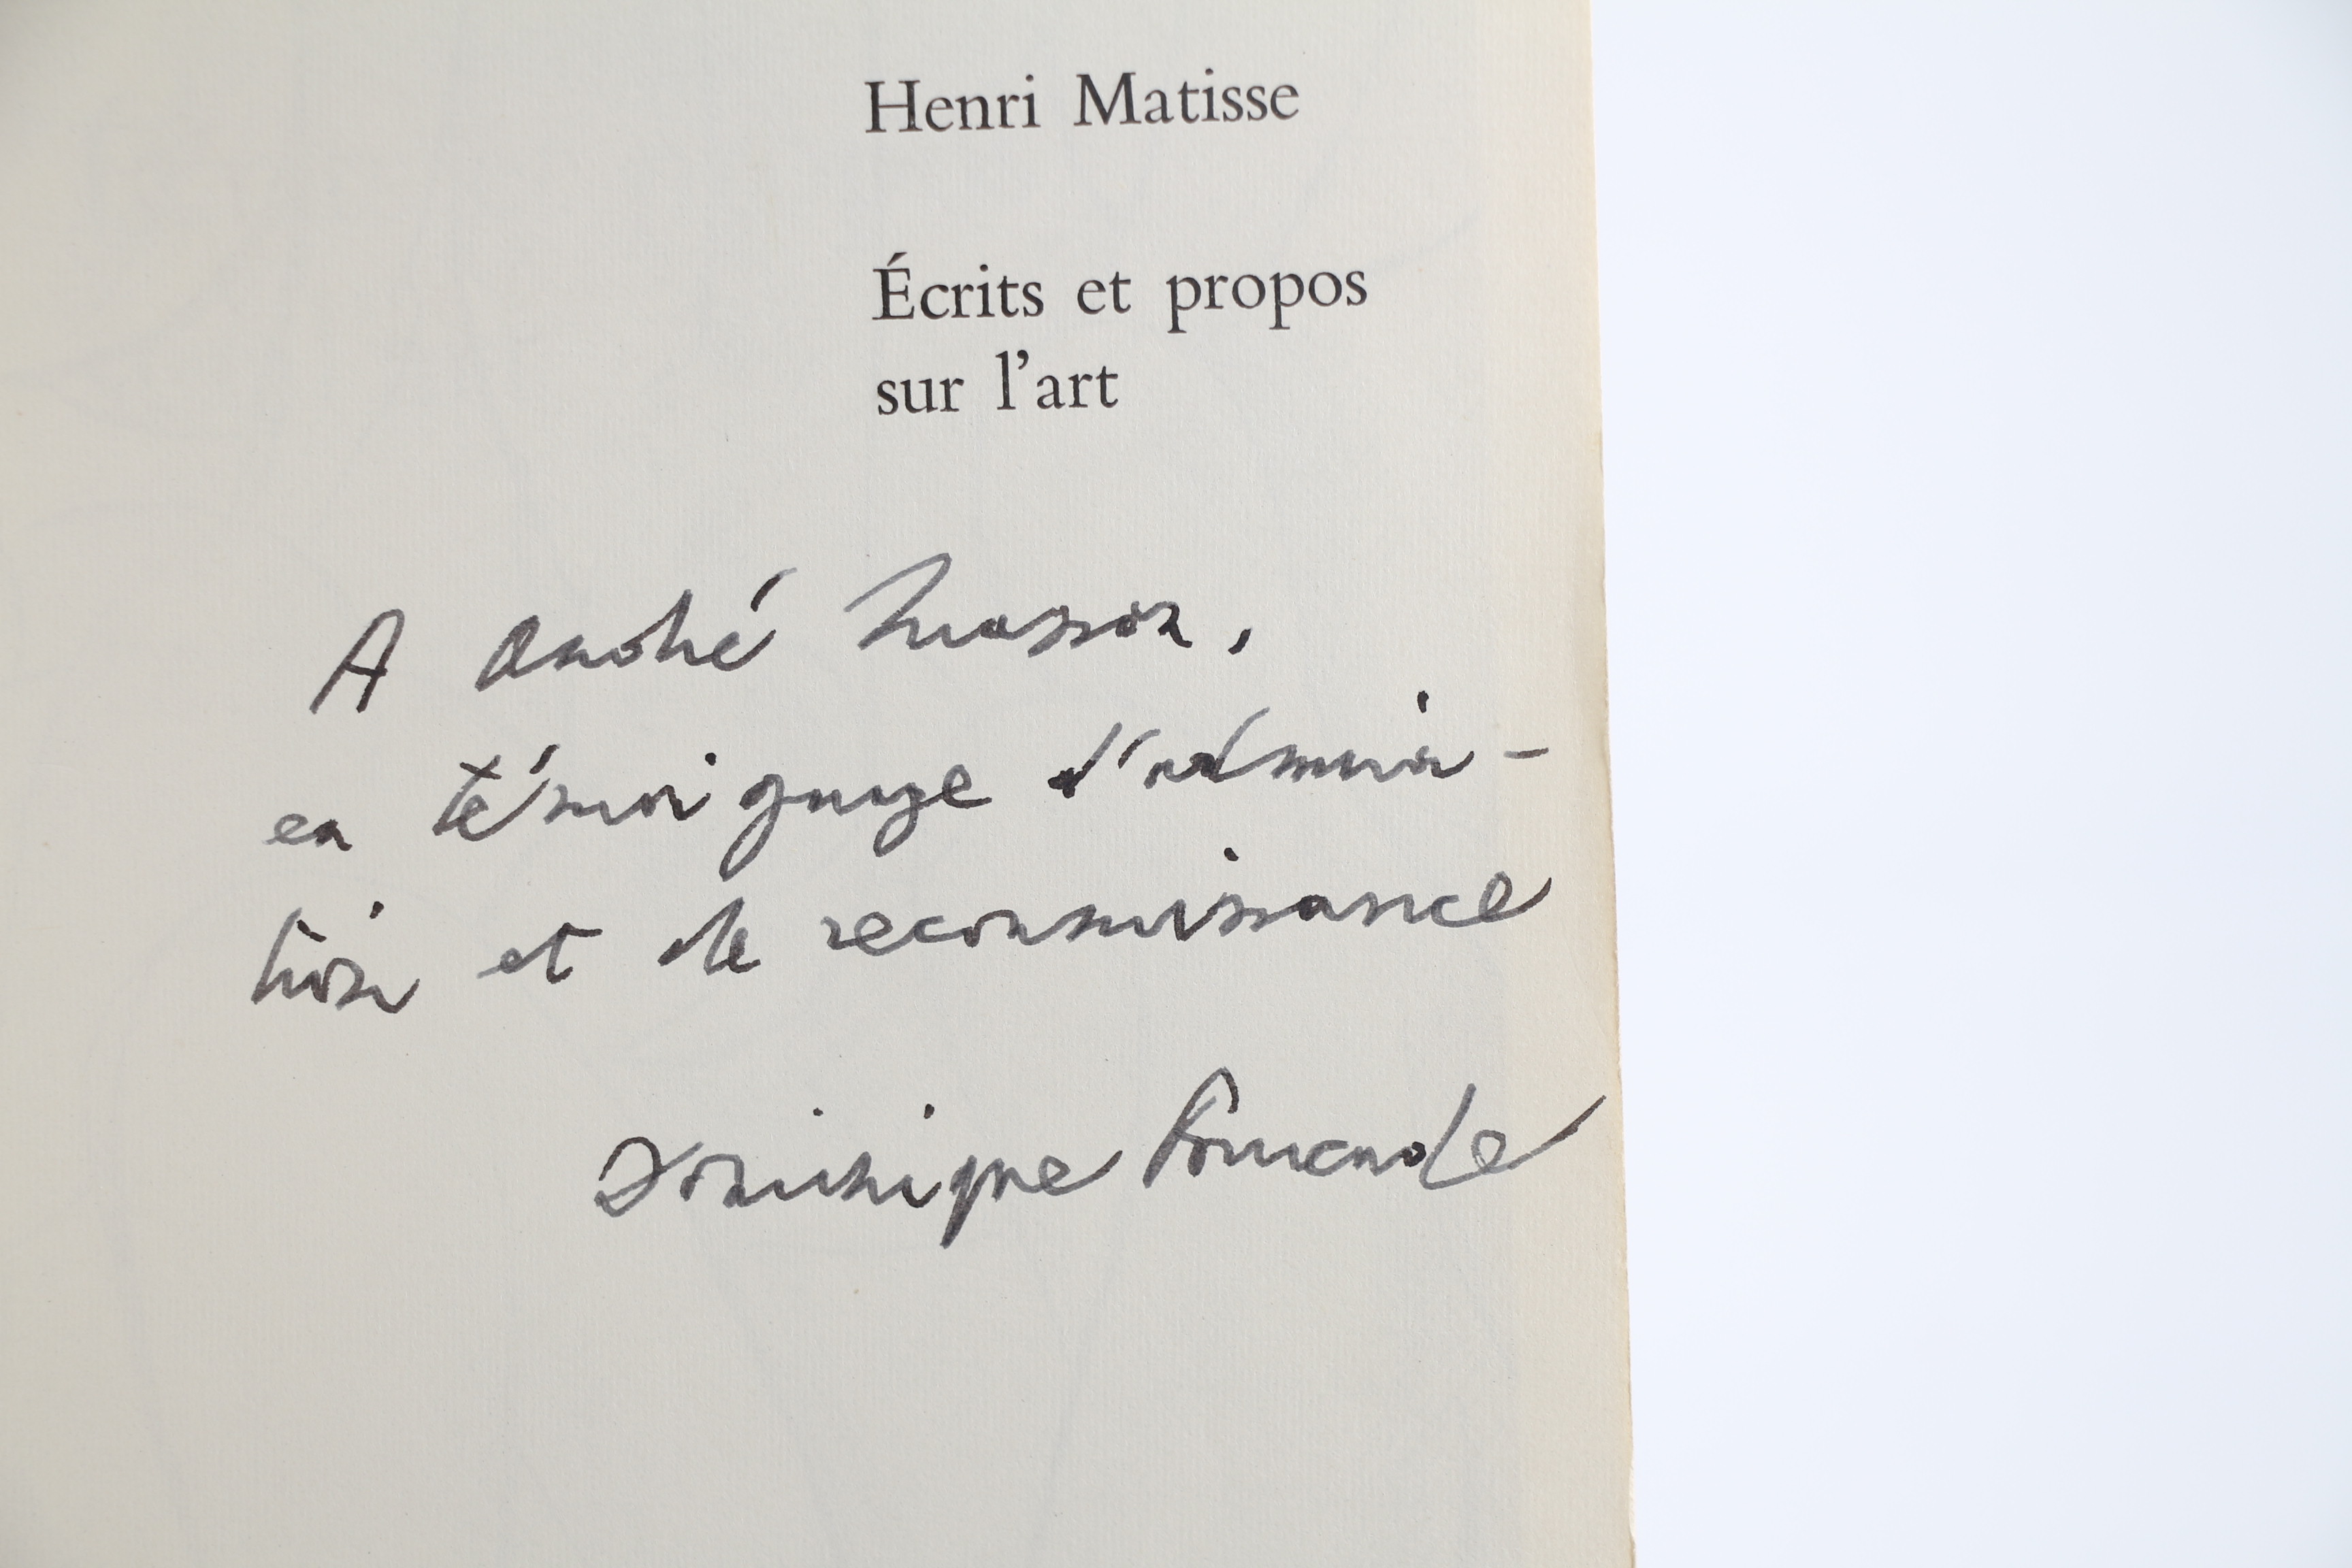 Henri Matisse
Écrits et propos
sur l'art
A André Masson,
en témoignage d'admira-
tion et de reconnaissance
Dominique Fourcade